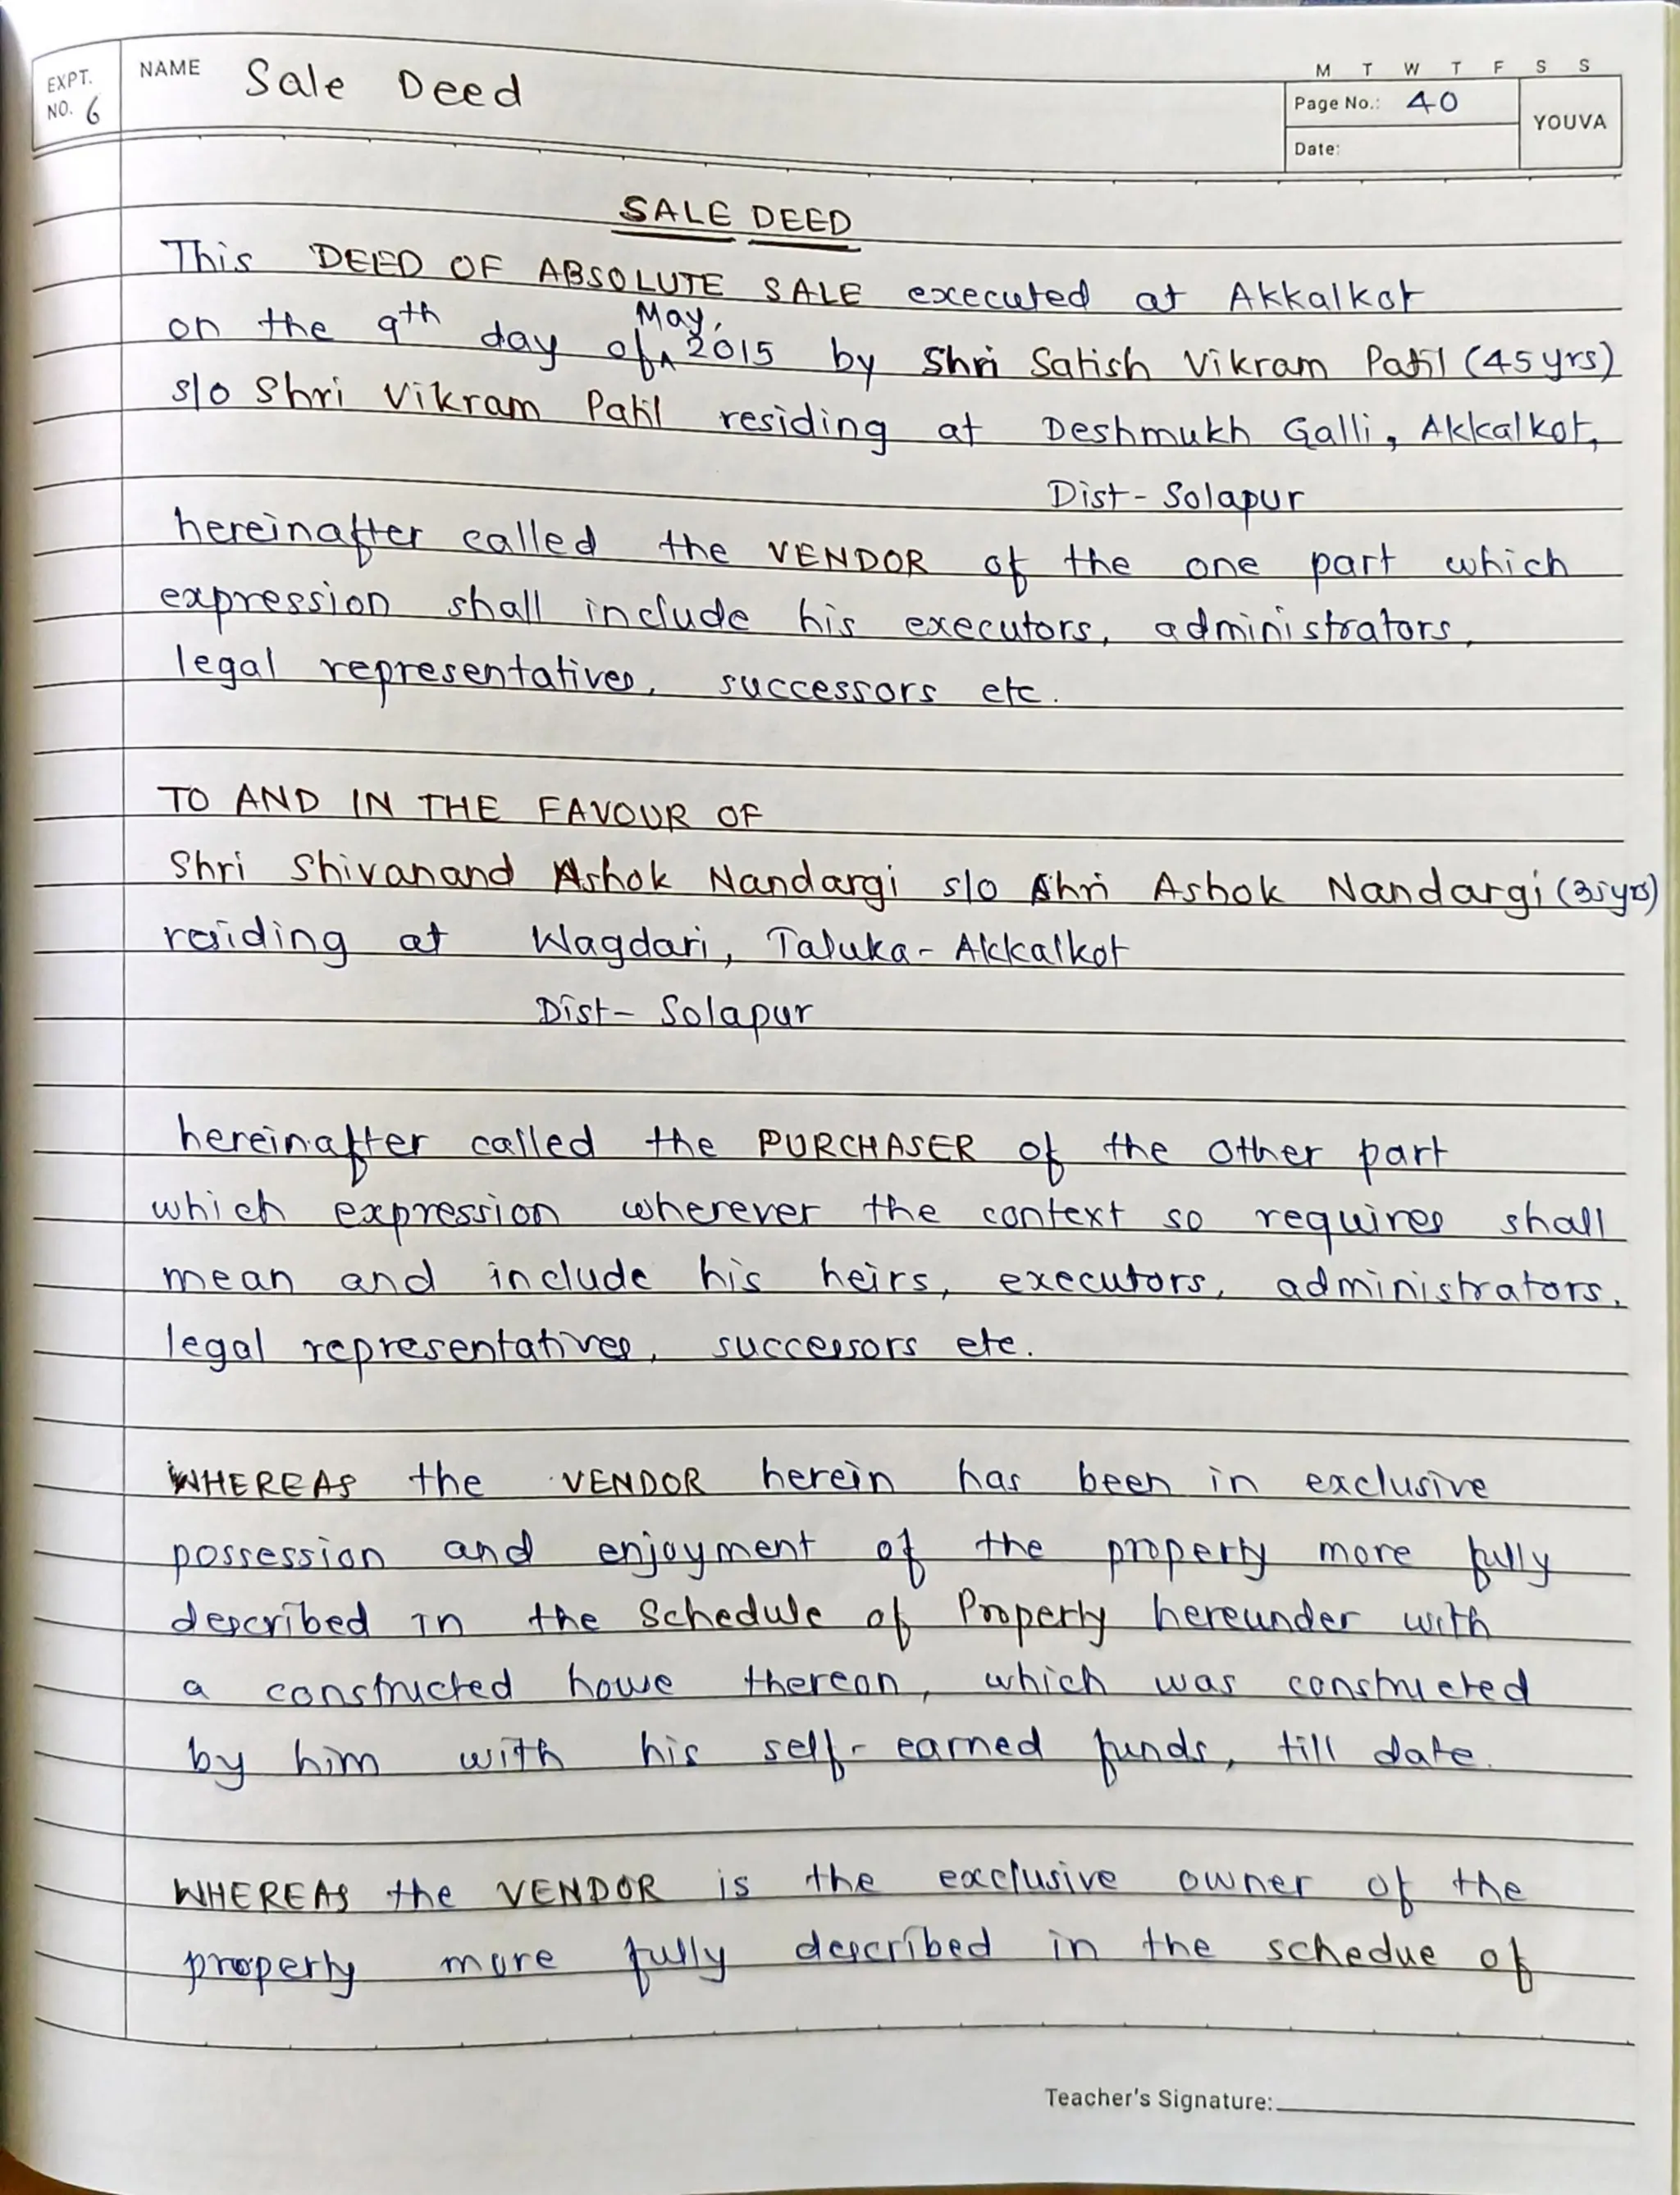 EXPT. NO. 6
NAME Sale Deed
M T W T F S S
Page No.: 40
Date:
YOUVA
SALE DEED
This DEED OF ABSOLUTE SALE executed at Akkalkot
on the 9th day of May, 2015 by Shri Satish Vikram Patil (45 yrs)
s/o Shri Vikram Patil residing at Deshmukh Galli, Akkalkot,
Dist - Solapur
hereinafter called the VENDOR of the one part which
expression shall include his executors, administrators,
legal representatives, successors etc.
TO AND IN THE FAVOUR OF
Shri Shivanand Ashok Nandargi s/o Shri Ashok Nandargi (35 yrs)
residing at Wagdari, Taluka - Akkalkot
Dist - Solapur
hereinafter called the PURCHASER of the other part
which expression wherever the context so requires shall
mean and include his heirs, executors, administrators,
legal representatives, successors etc.
WHEREAS the VENDOR herein has been in exclusive
possession and enjoyment of the property more fully
described in the Schedule of Property hereunder with
a constructed house thereon, which was constructed
by him with his self-earned funds, till date.
WHEREAS the VENDOR is the exclusive owner of the
property more fully described in the schedue of
Teacher's Signature: